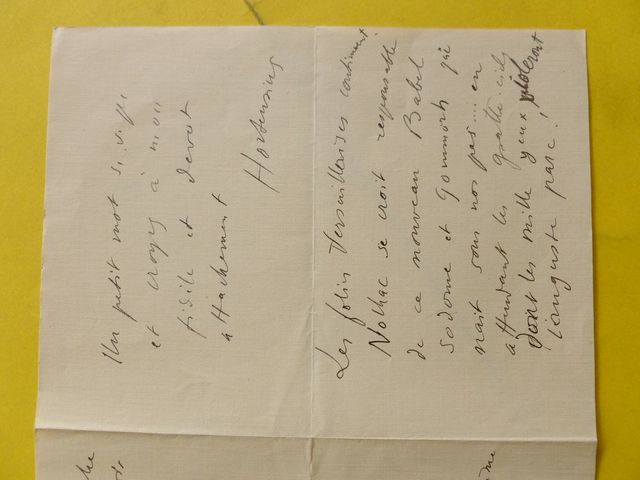 Un petit mot S. V. P.
et croyez à mon
fidèle et devoué
attachement
Hortensius
Les folies Versaillaises continuent
Nolhac se croit responsable
de ce nouveau Babel
Sodome et Gommorh qui
nait sous nos pas... en
attendant les gratte-ciels
dont les mille yeux violeront
l'auguste parc!